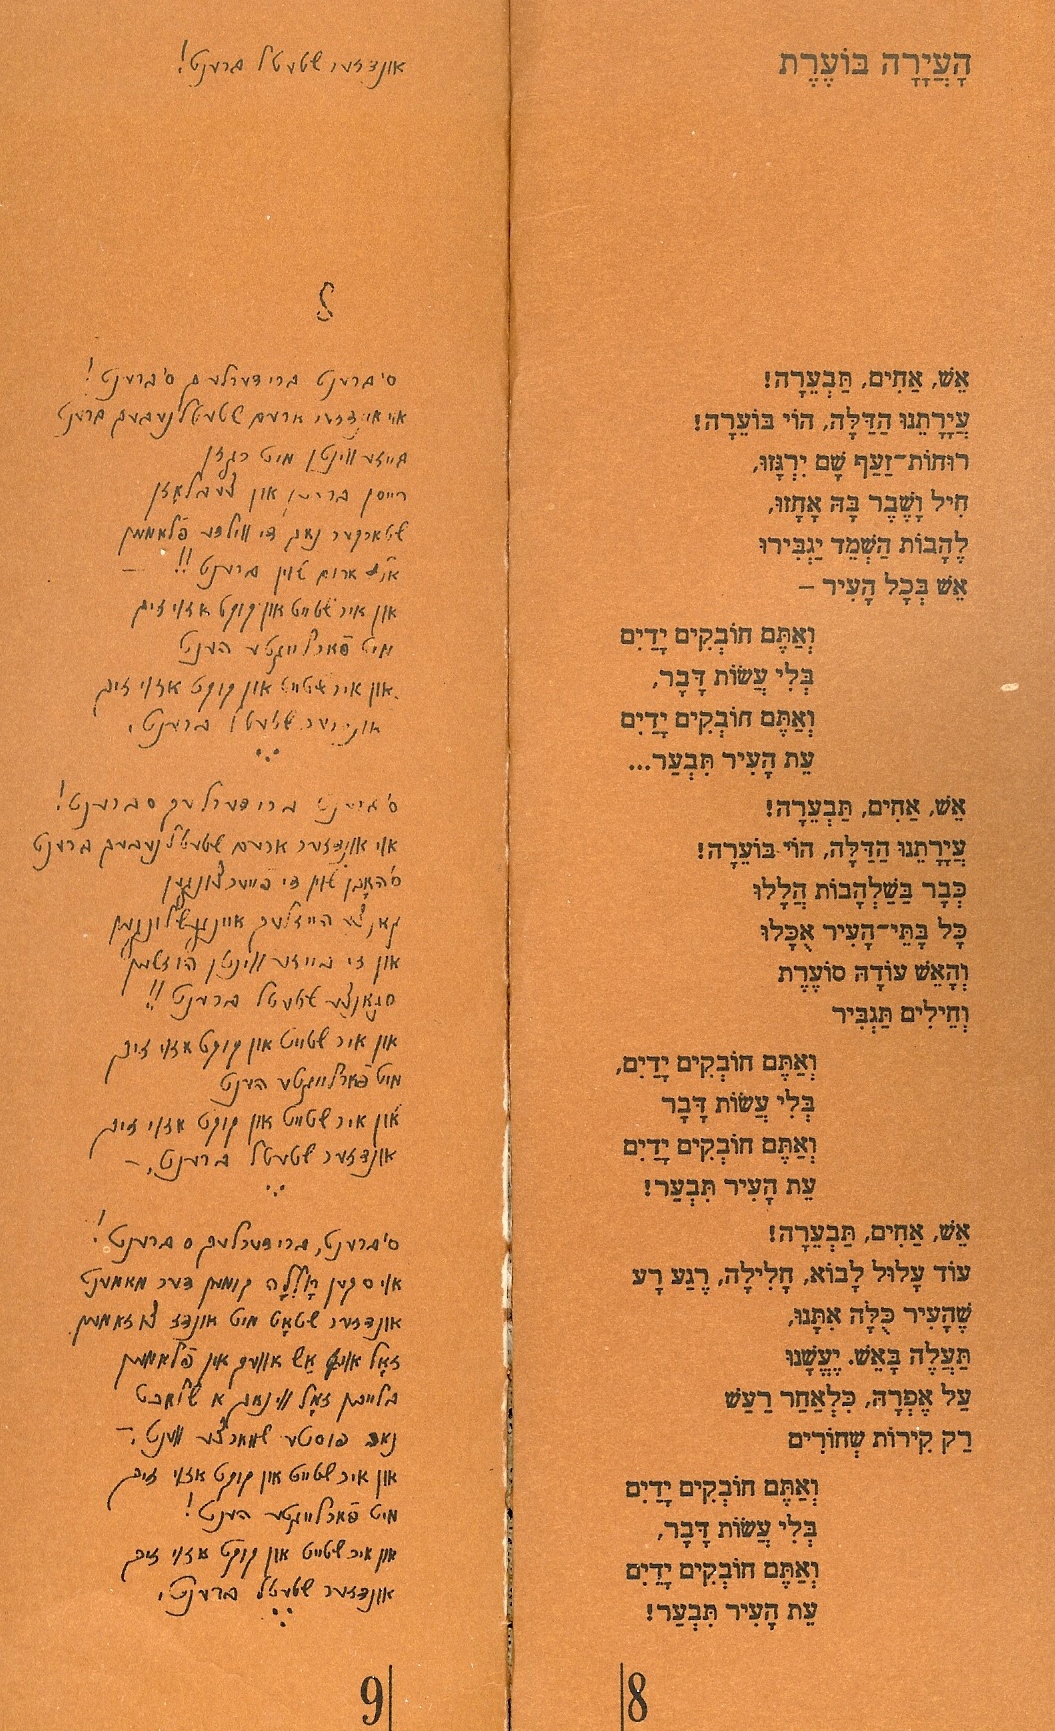 הָעֲיָרָה בּוֹעֶרֶת
אֵשׁ, אַחִים, תַּבְעֵרָה!
עֲיָרָתֵנוּ הַדַּלָּה, הוֹי בּוֹעֵרָה!
רוּחוֹת־זַעַף שָׁם יִרְגָּזוּ,
חִיל וָשֶׁבֶר בָּהּ אָחָזוּ,
לֶהָבוֹת הַשְּׁמֵד יַגְבִּירוּ
אֵשׁ בְּכָל הָעִיר –
וְאַתֶּם חוֹבְקִים יָדַיִם
בְּלִי עֲשׂוֹת דָּבָר,
וְאַתֶּם חוֹבְקִים יָדַיִם
עֵת הָעִיר תִּבְעַר...
אֵשׁ, אַחִים, תַּבְעֵרָה!
עֲיָרָתֵנוּ הַדַּלָּה, הוֹי בּוֹעֵרָה!
כְּבָר בַּשַּׁלְהָבוֹת הֲלָלוּ
כָּל בָּתֵּי־הָעִיר אֻכָּלוּ
וְהָאֵשׁ עוֹדָהּ סוֹעֶרֶת
וְחֵילִים תַּגְבִּיר
וְאַתֶּם חוֹבְקִים יָדַיִם,
בְּלִי עֲשׂוֹת דָּבָר
וְאַתֶּם חוֹבְקִים יָדַיִם
עֵת הָעִיר תִּבְעַר!
אֵשׁ, אַחִים, תַּבְעֵרָה!
עוֹד עָלוּל לָבוֹא, חָלִילָה, רֶגַע רָע
שֶׁהָעִיר כֻּלָּהּ אִתָּנוּ,
תַּעֲלֶה בָּאֵשׁ. יֶעֱשָׁנוּ
עַל אֶפְרָהּ, כִּלְאַחַר רַעַשׁ
רַק קִירוֹת שְׁחוֹרִים
וְאַתֶּם חוֹבְקִים יָדַיִם
בְּלִי עֲשׂוֹת דָּבָר,
וְאַתֶּם חוֹבְקִים יָדַיִם
עֵת הָעִיר תִּבְעַר!
8
אונדזער שטעטל ברענט!
ס'ברענט ברידערלעך ס'ברענט!
אוי אונדזער ארעם שטעטל נעבעך ברענט
בייזע ווינטן מיט רגזון
רייסן ברעכן און צעבלאָזן
שטארקער נאך די ווילדע פֿלאַמען
ארום שוין ברענט!! –
און איר שטייט און קוקט אזוי זיך
מיט פֿארלייגטע הענט
און איר שטייט און קוקט אזוי זיך
אונדזער שטעטל ברענט,
ס'ברענט ברידערלעך ס ברענט!
אוי אונדזער ארעם שטעטל נעבעך ברענט
ס'האָבן שוין די פייער צונגען
גאנצע היידלעך איינגעשלונגען
און די בייזע ווינטן הוזשען
שטעטל ברענט!!
און איר שטייט און קוקט אזוי זיך
מיט פֿארלייגטע הענט
און איר שטייט און קוקט אזוי זיך
אונדזער שטעטל ברענט, –
ס'ברענט, ברידערלעך ס ברענט!
אוי ס קען חָלִלָה קומען דער מאמענט
אונדזער שטאָט מיט אונדז צוזאמען
זאָל אויף אַש אוועק אין פֿלאַמען
בלייבן זאָל ווי נאך א שלאכט
נאר פוסטע שווארצע ווענט, –
און איר שטייט און קוקט אזוי זיך
מיט פֿארלייגטע הענט!
און איר שטייט און קוקט אזוי זיך
אונדזער שטעטל ברענט,
9